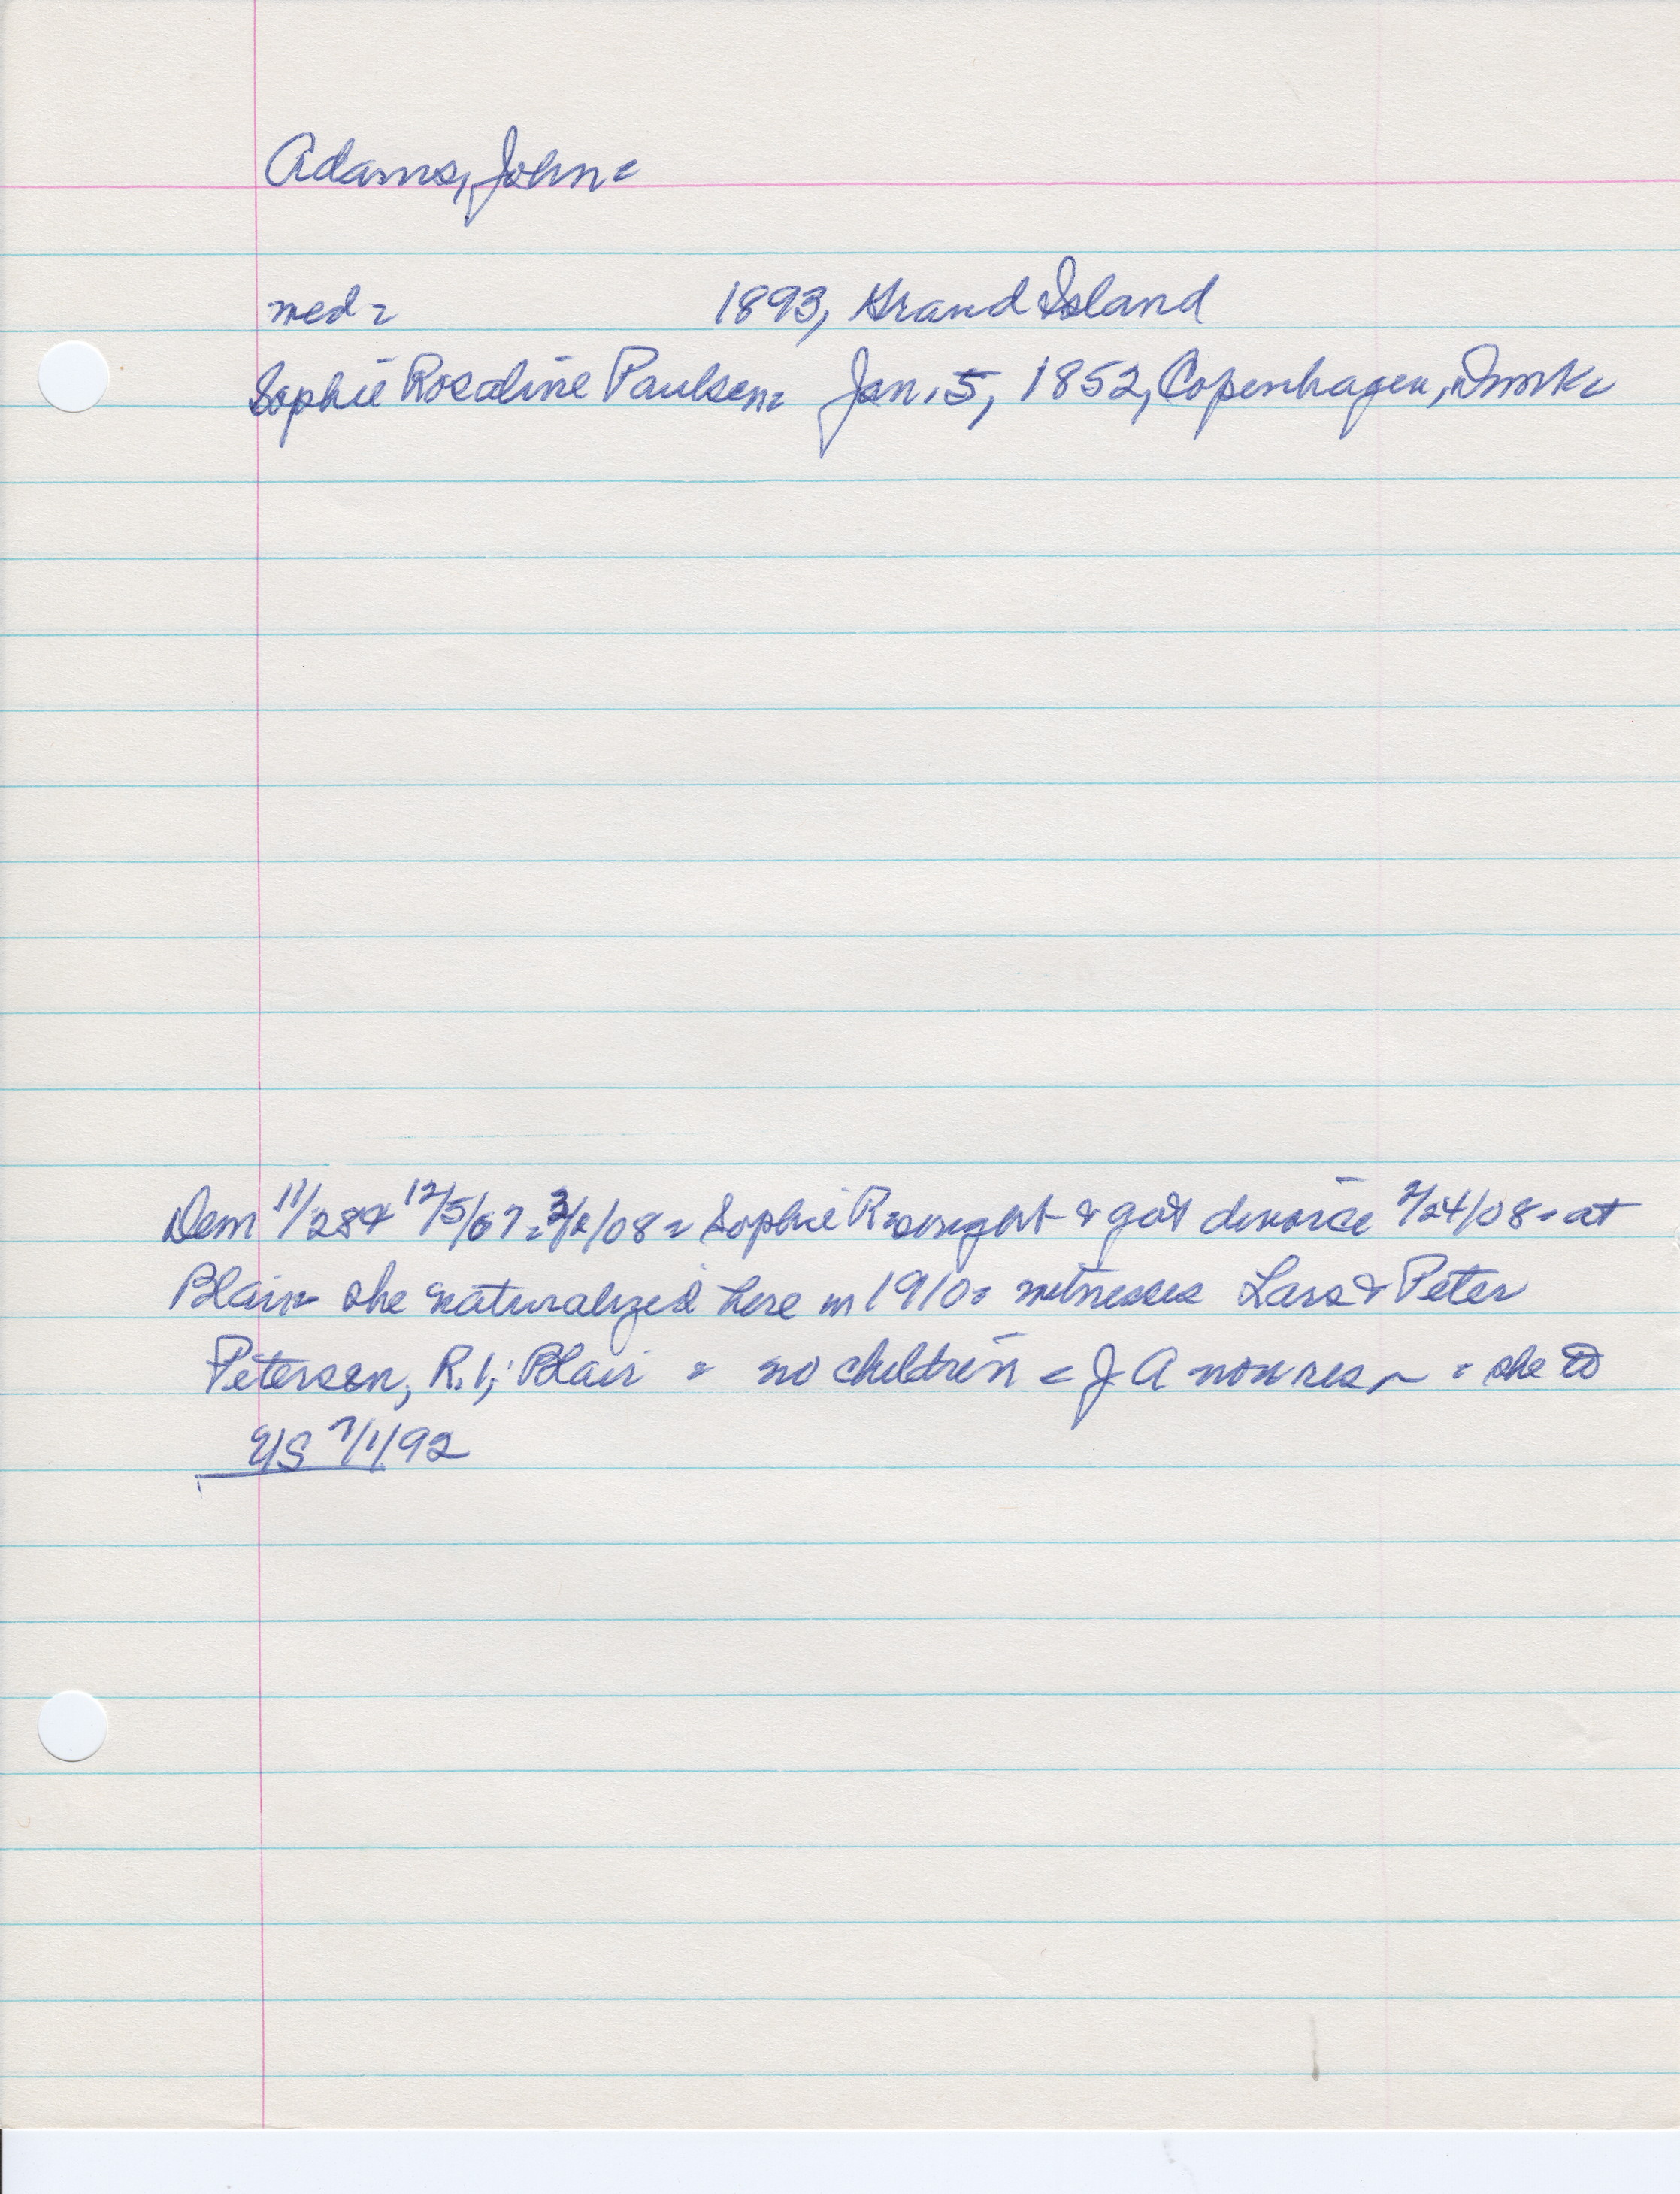 Adams, John=
med= 1893, Grand Island
Sophie Rosaline Paulsen= Jan. 5, 1852, Copenhagen, Dnmk=
Dem 11/28 & 12/5/07= /08= Sophie R sought & got divorce 2/24/08= at
Blair= she naturalized here in 1910= witnesses Lars & Peter
Petersen, R.1, Blair = no children = J A non res = she to
US 7/1/92